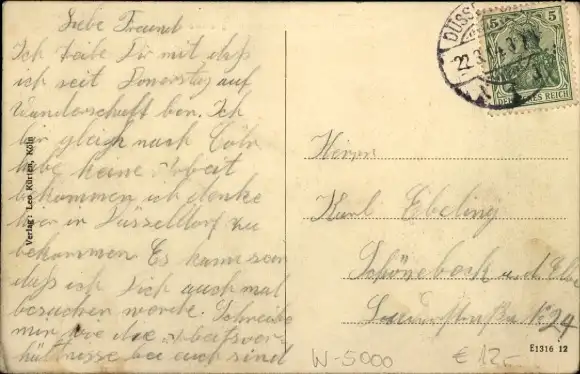 Liebe Freund
Ich teile Dir mit daß
ich seit Donerstag auf
Wanderschaft ben. Ich
bin gleich nach Cöln
habe keine Arbeit
bekommen ich denke
hier in Düsseldorf zu
bekommen. Es kann sein
daß ich Dich auch mal
besuchen werde. Schreibe
mir wie die Arbeitsver-
hältnisse bei euch sind
Verlag: Leo Kürten, Köln
22.3.
5 5
DEUTSCHES REICH
Herrn
Karl Ebeling
Schönebeck a. d. Elbe
No 24
E1316 12
W-5000
€ 12,-